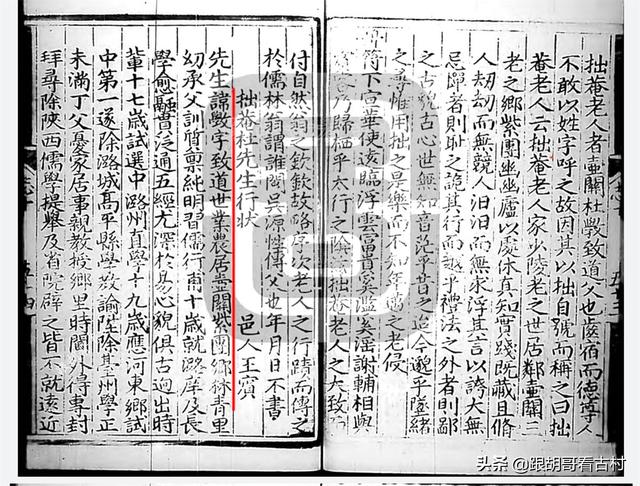 拙菴老人者壼關杜斆致道父也齒宿而德尊人
不敢以姓字呼之故因其以拙自號而稱之曰拙
菴老人云拙菴老人家少陵老之世居鄰壼關三
老之鄉紫團幽幽廬以處休真知實踐旣藏且脩
人刼刼而無競人汨汨而無求浮其言以誇大無
忌憚者則趾之詭其行而越乎禮法之外者則鄙
之古貌古心世無知音茫乎昔之造今邈乎墜緒
之尋惟用拙之是樂而不知年齒之老侵
符下宣華使該臨浮雲富貴奚濫奚淫謝輔相與
乃歸栖乎太行之陰拙菴老人之大致
付自然翁之欽欽故略序次老人之行蹟而傳之
於儒林翁謂誰閩吳源性傳父也年月日不書
拙菴杜先生行狀
邑人王賓
先生諱斆字致道世業農居壼關紫團鄉林青里
幼承父訓質稟純明習儒行甫十歲就路庠及長
學愈贍貫泛通五經尤深於易心貌俱古迥出時
輩十七歲試選中潞州直學十九歲應河東鄉試
中第一遂除潞城高平縣學敎諭陞除臺州學正
未滿丁父憂家居事親敎授鄉里時閫外得專封
拜尋除陝西儒學提舉及省院辟之皆不就遠近
头条 @跟胡哥看古村